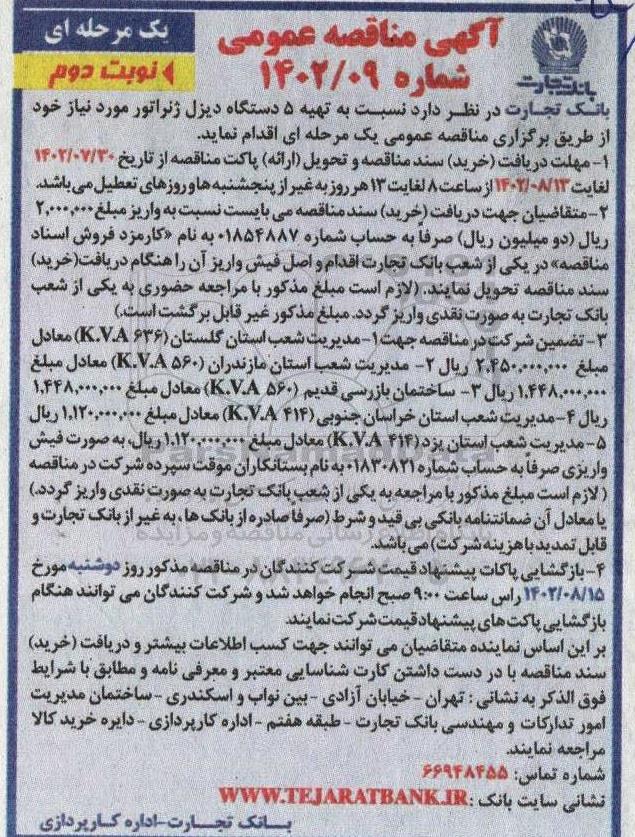 آگهی مناقصه عمومی
شماره ۱۴۰۲/۰۹
یک مرحله ای
نوبت دوم
بانک تجارت
بانک تجارت در نظر دارد نسبت به تهیه ۵ دستگاه دیزل ژنراتور مورد نیاز خود
از طریق برگزاری مناقصه عمومی یک مرحله ای اقدام نماید.
۱- مهلت دریافت (خرید) سند مناقصه و تحویل (ارائه) پاکت مناقصه از تاریخ ۱۴۰۲/۰۷/۳۰
لغایت ۱۴۰۲/۰۸/۱۳ از ساعت ۸ لغایت ۱۳ هر روز به غیر از پنجشنبه ها و روزهای تعطیل می باشد.
۲- متقاضیان جهت دریافت (خرید) سند مناقصه می بایست نسبت به واریز مبلغ ۲,۰۰۰,۰۰۰
ریال (دو میلیون ریال) صرفاً به حساب شماره ۰۱۸۵۴۸۸۷ به نام «کارمزد فروش اسناد
مناقصه» در یکی از شعب بانک تجارت اقدام و اصل فیش واریز آن را هنگام دریافت (خرید)
سند مناقصه تحویل نمایند. (لازم است مبلغ مذکور با مراجعه حضوری به یکی از شعب
بانک تجارت به صورت نقدی واریز گردد. مبلغ مذکور غیر قابل برگشت است.)
۳- تضمین شرکت در مناقصه جهت ۱- مدیریت شعب استان گلستان (۶۳۶ K.V.A) معادل
مبلغ ۲,۴۵۰,۰۰۰,۰۰۰ ریال ۲- مدیریت شعب استان مازندران (۵۶۰ K.V.A) معادل مبلغ
۱,۴۴۸,۰۰۰,۰۰۰ ریال ۳- ساختمان بازرسی قدیم (۵۶۰ K.V.A) معادل مبلغ ۱,۴۴۸,۰۰۰,۰۰۰
ریال ۴- مدیریت شعب استان خراسان جنوبی (۴۱۴ K.V.A) معادل مبلغ ۱,۱۲۰,۰۰۰,۰۰۰ ریال
۵- مدیریت شعب استان یزد (۴۱۴ K.V.A) معادل مبلغ ۱,۱۲۰,۰۰۰,۰۰۰ ریال، به صورت فیش
واریزی صرفاً به حساب شماره ۰۱۸۳۰۸۲۱ به نام بستانکاران موقت سپرده شرکت در مناقصه
(لازم است مبلغ مذکور با مراجعه به یکی از شعب بانک تجارت به صورت نقدی واریز گردد.)
یا معادل آن ضمانتنامه بانکی بی قید و شرط (صرفا صادره از بانک ها، به غیر از بانک تجارت و
قابل تمدید با هزینه شرکت) می باشد.
۴- بازگشایی پاکات پیشنهاد قیمت شرکت کنندگان در مناقصه مذکور روز دوشنبه مورخ
۱۴۰۲/۰۸/۱۵ راس ساعت ۹:۰۰ صبح انجام خواهد شد و شرکت کنندگان می توانند هنگام
بازگشایی پاکت های پیشنهاد قیمت شرکت نمایند.
بر این اساس نماینده متقاضیان می توانند جهت کسب اطلاعات بیشتر و دریافت (خرید)
سند مناقصه با در دست داشتن کارت شناسایی معتبر و معرفی نامه و مطابق با شرایط
فوق الذکر به نشانی : تهران - خیابان آزادی - بین نواب و اسکندری - ساختمان مدیریت
امور تدارکات و مهندسی بانک تجارت - طبقه هفتم - اداره کارپردازی - دایره خرید کالا
مراجعه نمایند.
شماره تماس: ۶۶۹۴۸۴۵۵
نشانی سایت بانک : WWW.TEJARATBANK.IR
بانک تجارت-اداره کارپردازی